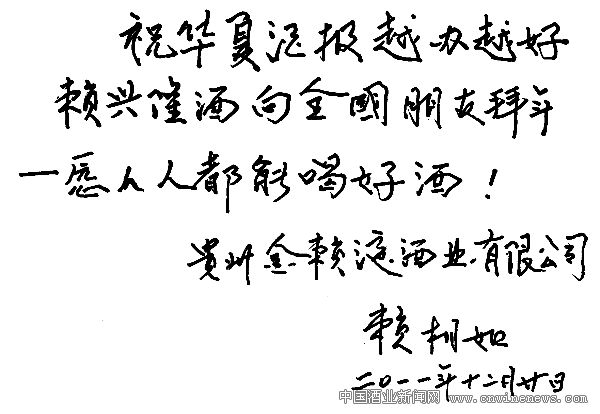 祝华夏酒报越办越好
赖兴酒向全國朋友拜年
一愿人人都能喝好酒！
贵州金赖酒业有限公司
赖相如
二0一一年十二月廿日
中国酒业新闻网 www.cnwinenews.com